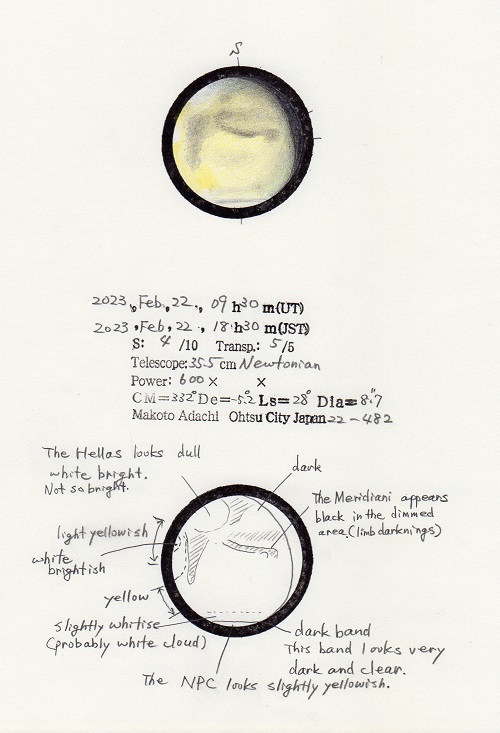 S
2023, Feb, 22, 09 h 30 m (UT)
2023, Feb, 22, 18 h 30 m (JST)
S: 4 /10 Transp.: 5 /5
Telescope: 35.5 cm Newtonian
Power: 600 × ×
CM=332° De=-5.2 Ls=28° Dia=8".7
Makoto Adachi Ohtsu City Japan 22-482
The Hellas looks dull
white bright.
Not so bright.
dark
The Meridiani appears
black in the dimmed
area. (limb darknings)
light yellowish
white
brightish
yellow
slightly whitise
(probably white cloud)
dark band
This band looks very
dark and clear.
The NPC looks slightly yellowish.